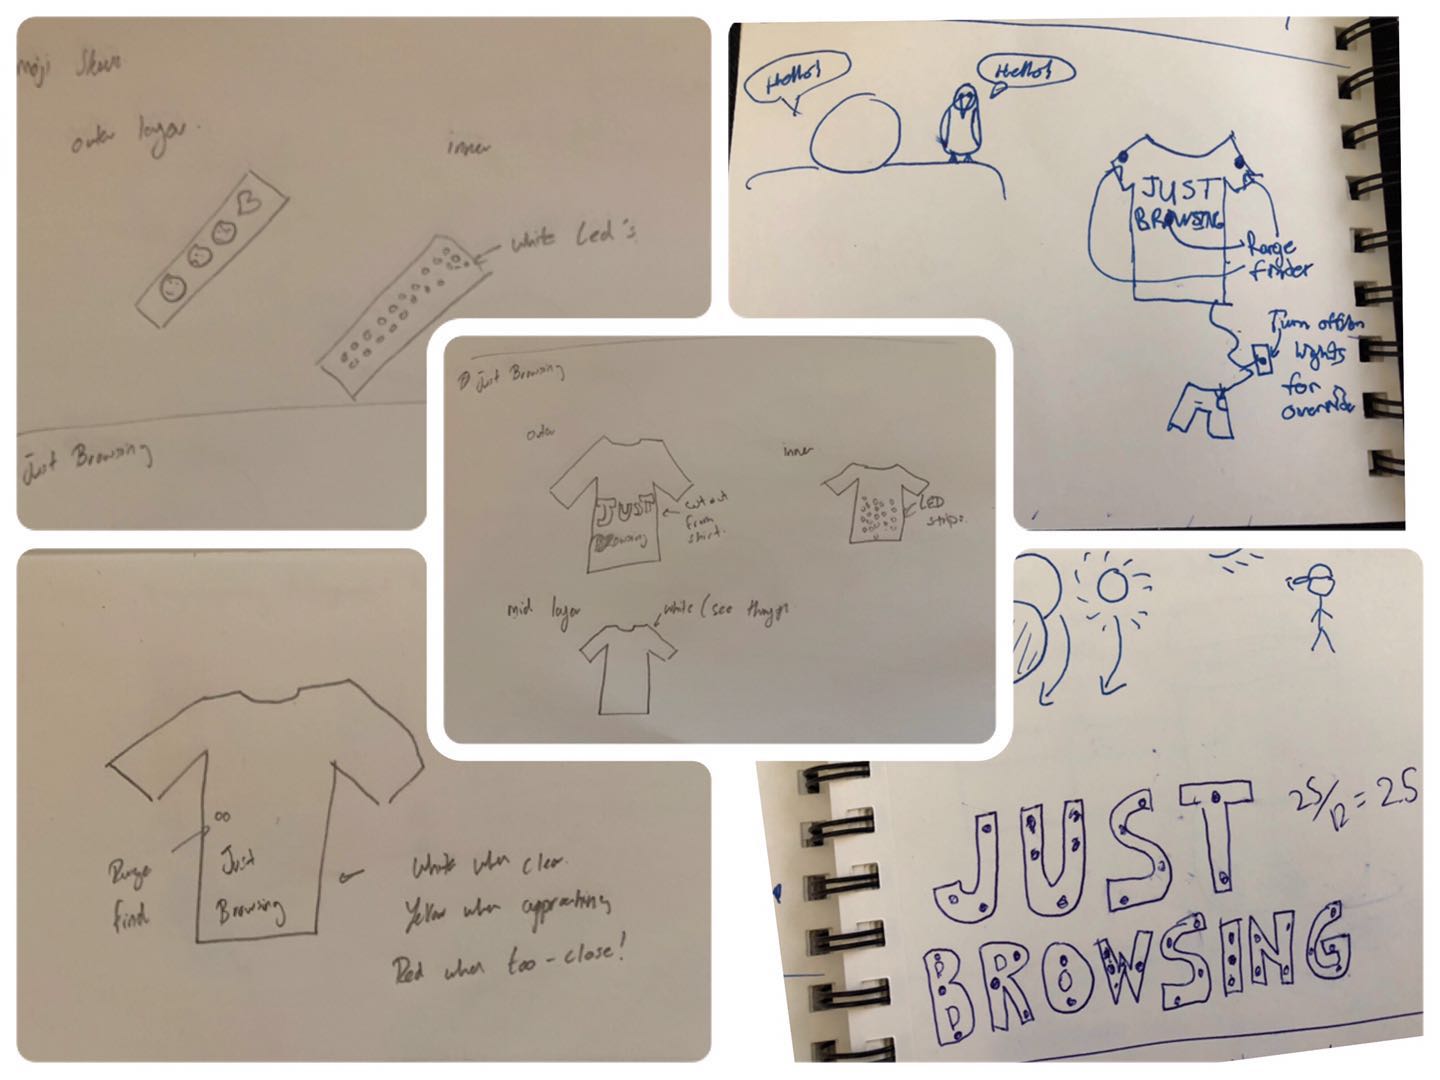 moji Sleeve
outer layer.
inner
white Led's
Just Browsing
Hello!
Hello!
JUST
BROWSING
Range
finder
Turn off/on
lights
for
override
Just Browsing
outer
inner
JUST
Browsing
cut out
from
shirt.
LED
strips.
mid layer
white (see through
Range
find
Just
Browsing
White when clear.
Yellow when approaching
Red when too-close!
JUST
BROWSING
25/12 = 2.5